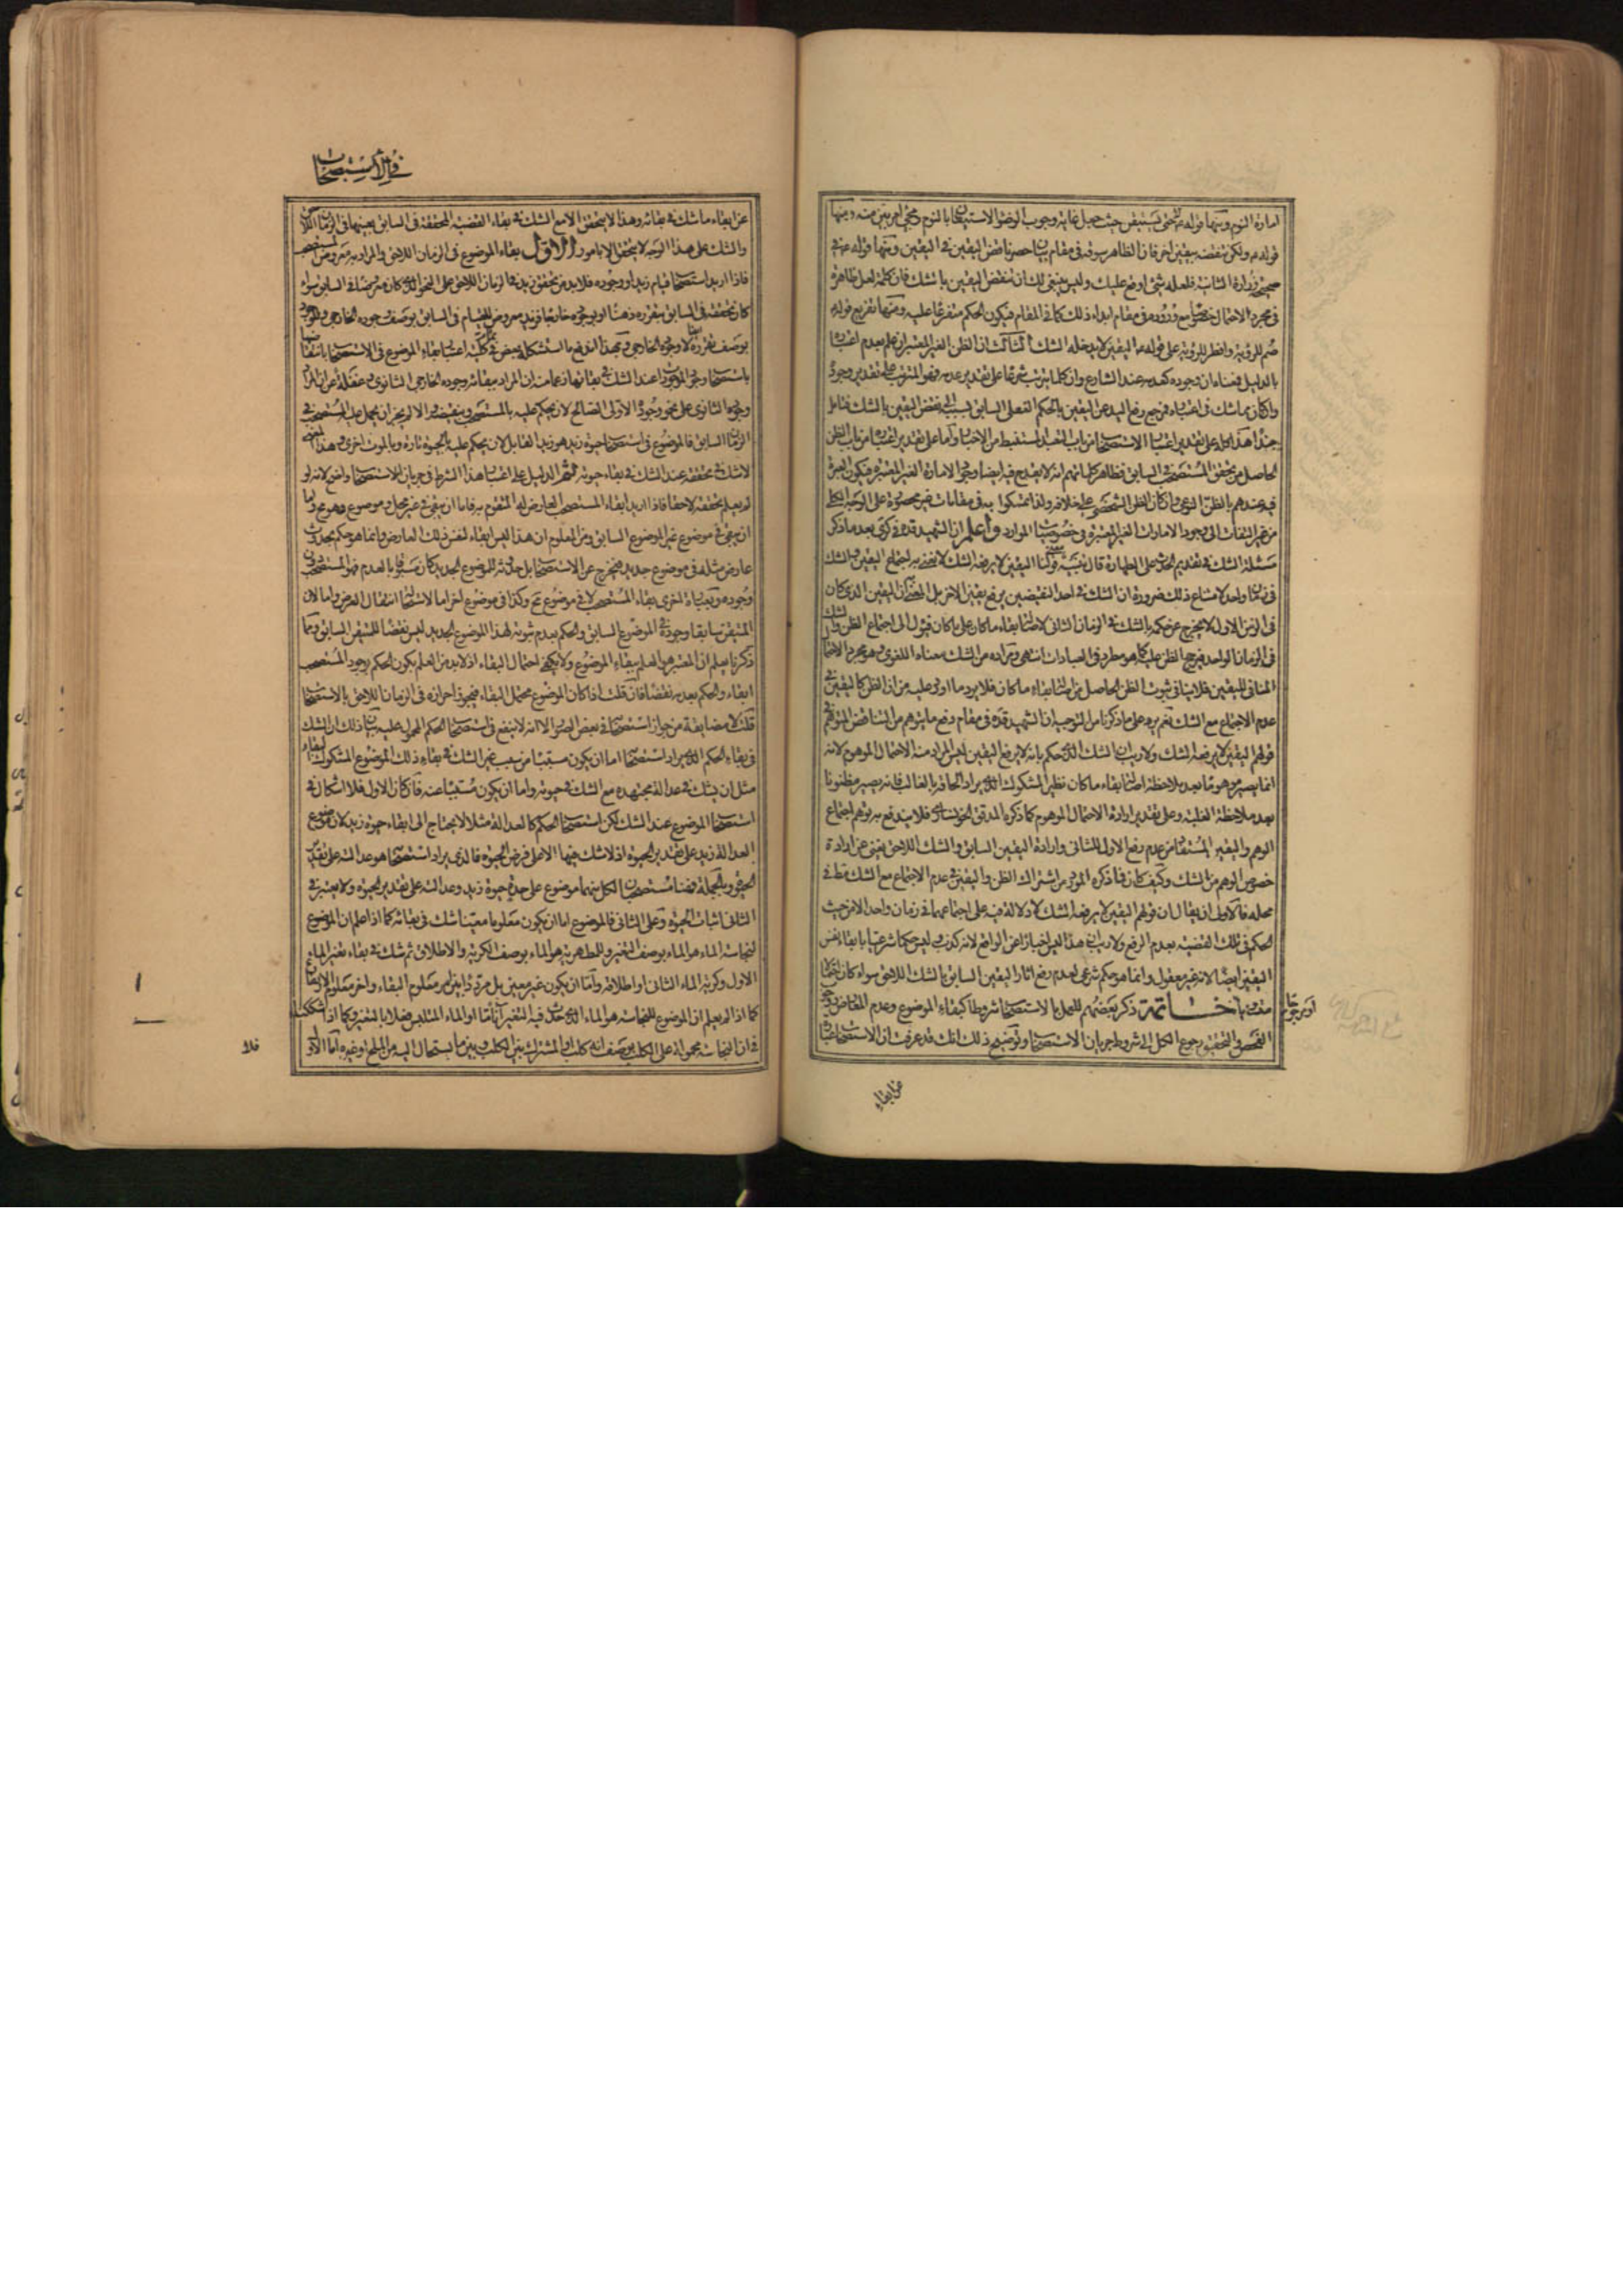 امارة النوم ومنها قوله ع حتى يستيقن حيث جعل غاية وجوب الوضوء الاستيقان بالنوم ومجئ امر بين منه ومنها
قوله ع ولكن ينقضه بيقين اخر فان الظاهر سوقه في مقام بيان حصر ناقض اليقين في اليقين ومنها قوله ع في
صحيحة زرارة الثانية فلعله شئ اوقع عليك وليس ينبغي لك ان تنقض اليقين بالشك فان كلمة لعل ظاهرة
في مجرد الاحتمال خصوصا مع وروده في مقام ابداء ذلك كما في المقام فيكون الحكم متفرعا عليه ومنها تفريع قوله
صم للرؤية وافطر للرؤية على قوله ع اليقين لا يدخله الشك الثالث ان الظن الغير المعتبر ان علم بعدم اعتباره
بالدليل فمعناه ان وجوده كعدمه عند الشارع وان كلما يترتب شرعا على تقدير عدمه فهو المترتب على تقدير وجوده
وان كان مما شك في اعتباره فمرجع رفع اليد عن اليقين بالحكم الفعلي السابق بسببه الى نقض اليقين بالشك فتامل
جيدا هذا كله على تقدير اعتبار الاستصحاب من باب التعبد المستنبط من الاخبار واما على تقدير اعتباره من باب الظن
الحاصل من تحقق المستصحب في السابق فظاهر كلماتهم انه لا يقدح فيه ايضا وجود الامارة الغير المعتبرة فيكون العبرة
فيه عندهم بالظن النوعي وان كان الظن الشخصي على خلافه ولذا تمسكوا به في مقامات غير محصورة على الوجه الكلي
من غير التفات الى وجود الامارات الغير المعتبرة في خصوصيات الموارد واعلم ان الشهيد قده في كرى بعد ما ذكر
مسئلة الشك في تقديم الحدث على الطهارة قال تنبيه قولنا اليقين لا يرفعه الشك لا نعني به اجتماع اليقين والشك
في زمان واحد لامتناع ذلك ضرورة ان الشك في احد النقيضين يرفع يقين الاخر بل المعني به ان اليقين الذي كان
في الزمن الاول لا يخرج عن حكمه بالشك في الزمان الثاني لاصالة بقاء ما كان على ما كان فيؤل الى اجتماع الظن والشك
في الزمان الواحد فيرجح الظن عليه كما هو مطرد في العبادات انتهى ومراده من الشك معناه اللغوي وهو مجرد الاحتمال
المنافي لليقين فلا ينافي ثبوت الظن الحاصل من اصالة بقاء ما كان فلا يرد ما اورد عليه من ان الظن كاليقين في
عدم الاجتماع مع الشك نعم يرد على ما ذكرنا من التوجيه ان الشهيد قده في مقام دفع ما يتوهم من التناقض المتوهم في
قولهم اليقين لا يرفعه الشك ولا ريب ان الشك الذي حكم بانه لا يرفع اليقين ليس المراد منه الاحتمال الموهوم لانه
انما يصير موهوما بعد ملاحظة اصالة بقاء ما كان نظير المشكوك الذي يراد الحاقه بالغالب فانه يصير مظنونا
بعد ملاحظة الغلبة وعلى تقدير ارادة الاحتمال الموهوم كما ذكره المدقق الخوانساري فلا يندفع به توهم اجتماع
الوهم واليقين المستفاد من عدم رفع الاول للثاني وارادة اليقين السابق والشك اللاحق يغني عن ارادة
خصوص الوهم من الشك وكيف كان فما ذكره المورد من اشتراك الظن واليقين في عدم الاجتماع مع الشك مطلقا في
محله فالاولى ان يقال ان قولهم اليقين لا يرفعه الشك لا دلالة فيه على اجتماعهما في زمان واحد الا من حيث
الحكم في تلك القضية بعدم الرفع ولا ريب ان هذا ليس اخبارا عن الواقع لانه كذب وليس حكما شرعيا بابقاء نفس
اليقين ايضا لانه غير معقول وانما هو حكم شرعي لعدم رفع اثار اليقين السابق بالشك اللاحق سواء كان احتمالا
متساويا خاتمة ذكر بعضهم للعمل بالاستصحاب شروطا كبقاء الموضوع وعدم المعارض ووجوب
او مرجوحا
الفحص والتحقيق رجوع الكل الى شروط جريان الاستصحاب وتوضيح ذلك انك قد عرفت ان الاستصحاب عبارة
عن ابقاء
في الاستصحاب
عن ابقاء ما شك في بقائه وهذا لا يتحقق الا مع الشك في بقاء القضية المحققة في السابق بعينها في الزمان اللاحق
والشك على هذا الوجه لا يتحقق الا بامور الاول بقاء الموضوع في الزمان اللاحق والمراد به معروض المستصحب
فاذا اريد استصحاب قيام زيد او وجوده فلا بد من تحقق زيد في الزمان اللاحق على النحو الذي كان معروضا في السابق سواء
كان تحققه في السابق بتقرره ذهنا او بوجوده خارجا فزيد معروض للقيام في السابق بوصف وجوده الخارجي وللوجود
بوصف تقرره لا وجوده الخارجي وبهذا اندفع ما استشكله بعض في كلية اعتبار بقاء الموضوع في الاستصحاب بانتقاضها
باستصحاب وجود الموجودات عند الشك في بقائها زعما منه ان المراد ببقائه وجوده الخارجي الثانوي وغفلة عن ان المراد
وجوده الثانوي على نحو وجوده الاولى الصالح لان يحكم عليه بالمستصحب وبنقيضه والا لم يجز ان يحمل عليه المستصحب في
الزمان السابق فالموضوع في استصحاب حيوة زيد هو زيد القابل لان يحكم عليه بالحيوة تارة وبالموت اخرى وهذا المعنى
لا شك في تحققه عند الشك في بقاء حيوته ثم الدليل على اعتبار هذا الشرط في جريان الاستصحاب واضح لانه لو
لم يعلم تحققه لاحقا فاذا اريد ابقاء المستصحب العارض له المتقوم به فاما ان يبقى في غير محل وموضوع وهو مح واما
ان يبقى في موضوع غير الموضوع السابق ومن المعلوم ان هذا ليس ابقاء لنفس ذلك العارض وانما هو حكم بحدوث
عارض مثله في موضوع جديد فيخرج عن الاستصحاب بل حدوثه للموضوع الجديد كان مسبوقا بالعدم فهو المستصحب دون
وجوده وبعبارة اخرى بقاء المستصحب لا في موضوع مح وكذا في موضوع اخر اما لاستحالة انتقال العرض واما لان
المتيقن سابقا وجوده في الموضوع السابق والحكم بعدم ثبوته لهذا الموضوع الجديد ليس نقضا للمتيقن السابق ومما
ذكرنا يعلم ان المعتبر هو العلم ببقاء الموضوع ولا يكفي احتمال البقاء اذ لا بد من العلم بكون الحكم بوجود المستصحب
ابقاء والحكم بعدمه نقضا فان قلت اذا كان الموضوع محتمل البقاء فيجوز احرازه في الزمان اللاحق بالاستصحاب
قلت لا مضايقة من جواز استصحابه في بعض الصور الا انه لا ينفع في استصحاب الحكم المحمول عليه بيان ذلك ان الشك
في بقاء الحكم الذي يراد استصحابه اما ان يكون مسببا من سبب غير الشك في بقاء ذلك الموضوع المشكوك البقاء
مثل ان يشك في عدالة مجتهده مع الشك في حيوته واما ان يكون مسببا عنه فان كان الاول فلا اشكال في
استصحاب الموضوع عند الشك لكن استصحاب الحكم كالعدالة مثلا لا يحتاج الى ابقاء حيوة زيد لان موضوع
العدالة زيد على تقدير الحيوة اذ لا شك فيها الا على فرض الحيوة فالذي يراد استصحابه هو عدالته على تقدير
الحيوة وبالجملة فهنا مستصحبان لكل منهما موضوع على حدة حيوة زيد وعدالته على تقدير الحيوة ولا يعتبر في
الثاني اثبات الحيوة وعلى الثاني فالموضوع اما ان يكون معلوما معينا شك في بقائه كما اذا علم ان الموضوع
لنجاسة الماء هو الماء بوصف التغير وللمطهرية هو الماء بوصف الكرية والاطلاق ثم شك في بقاء تغير الماء
الاول وكرية الماء الثاني او اطلاقه واما ان يكون غير معين بل مرددا بين امر معلوم البقاء واخر معلوم الارتفاع
كما اذا لم يعلم ان الموضوع للنجاسة هو الماء الذي حدث فيه التغير آنا ما او الماء المتلبس فعلا بالتغير وكما اذا شككنا
في ان النجاسة محمولة على الكلب بوصف انه كلب او المشترك بين الكلب وبين ما يستحال اليه من الملح وغيره اما الاول
فلا